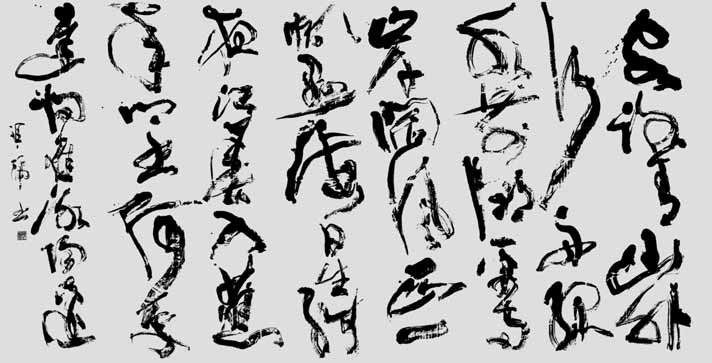 客路青山外
行舟绿
水前潮平两
岸阔风正一
帆悬海日生残
夜江春入旧
年乡书何处
达归雁洛阳边
书